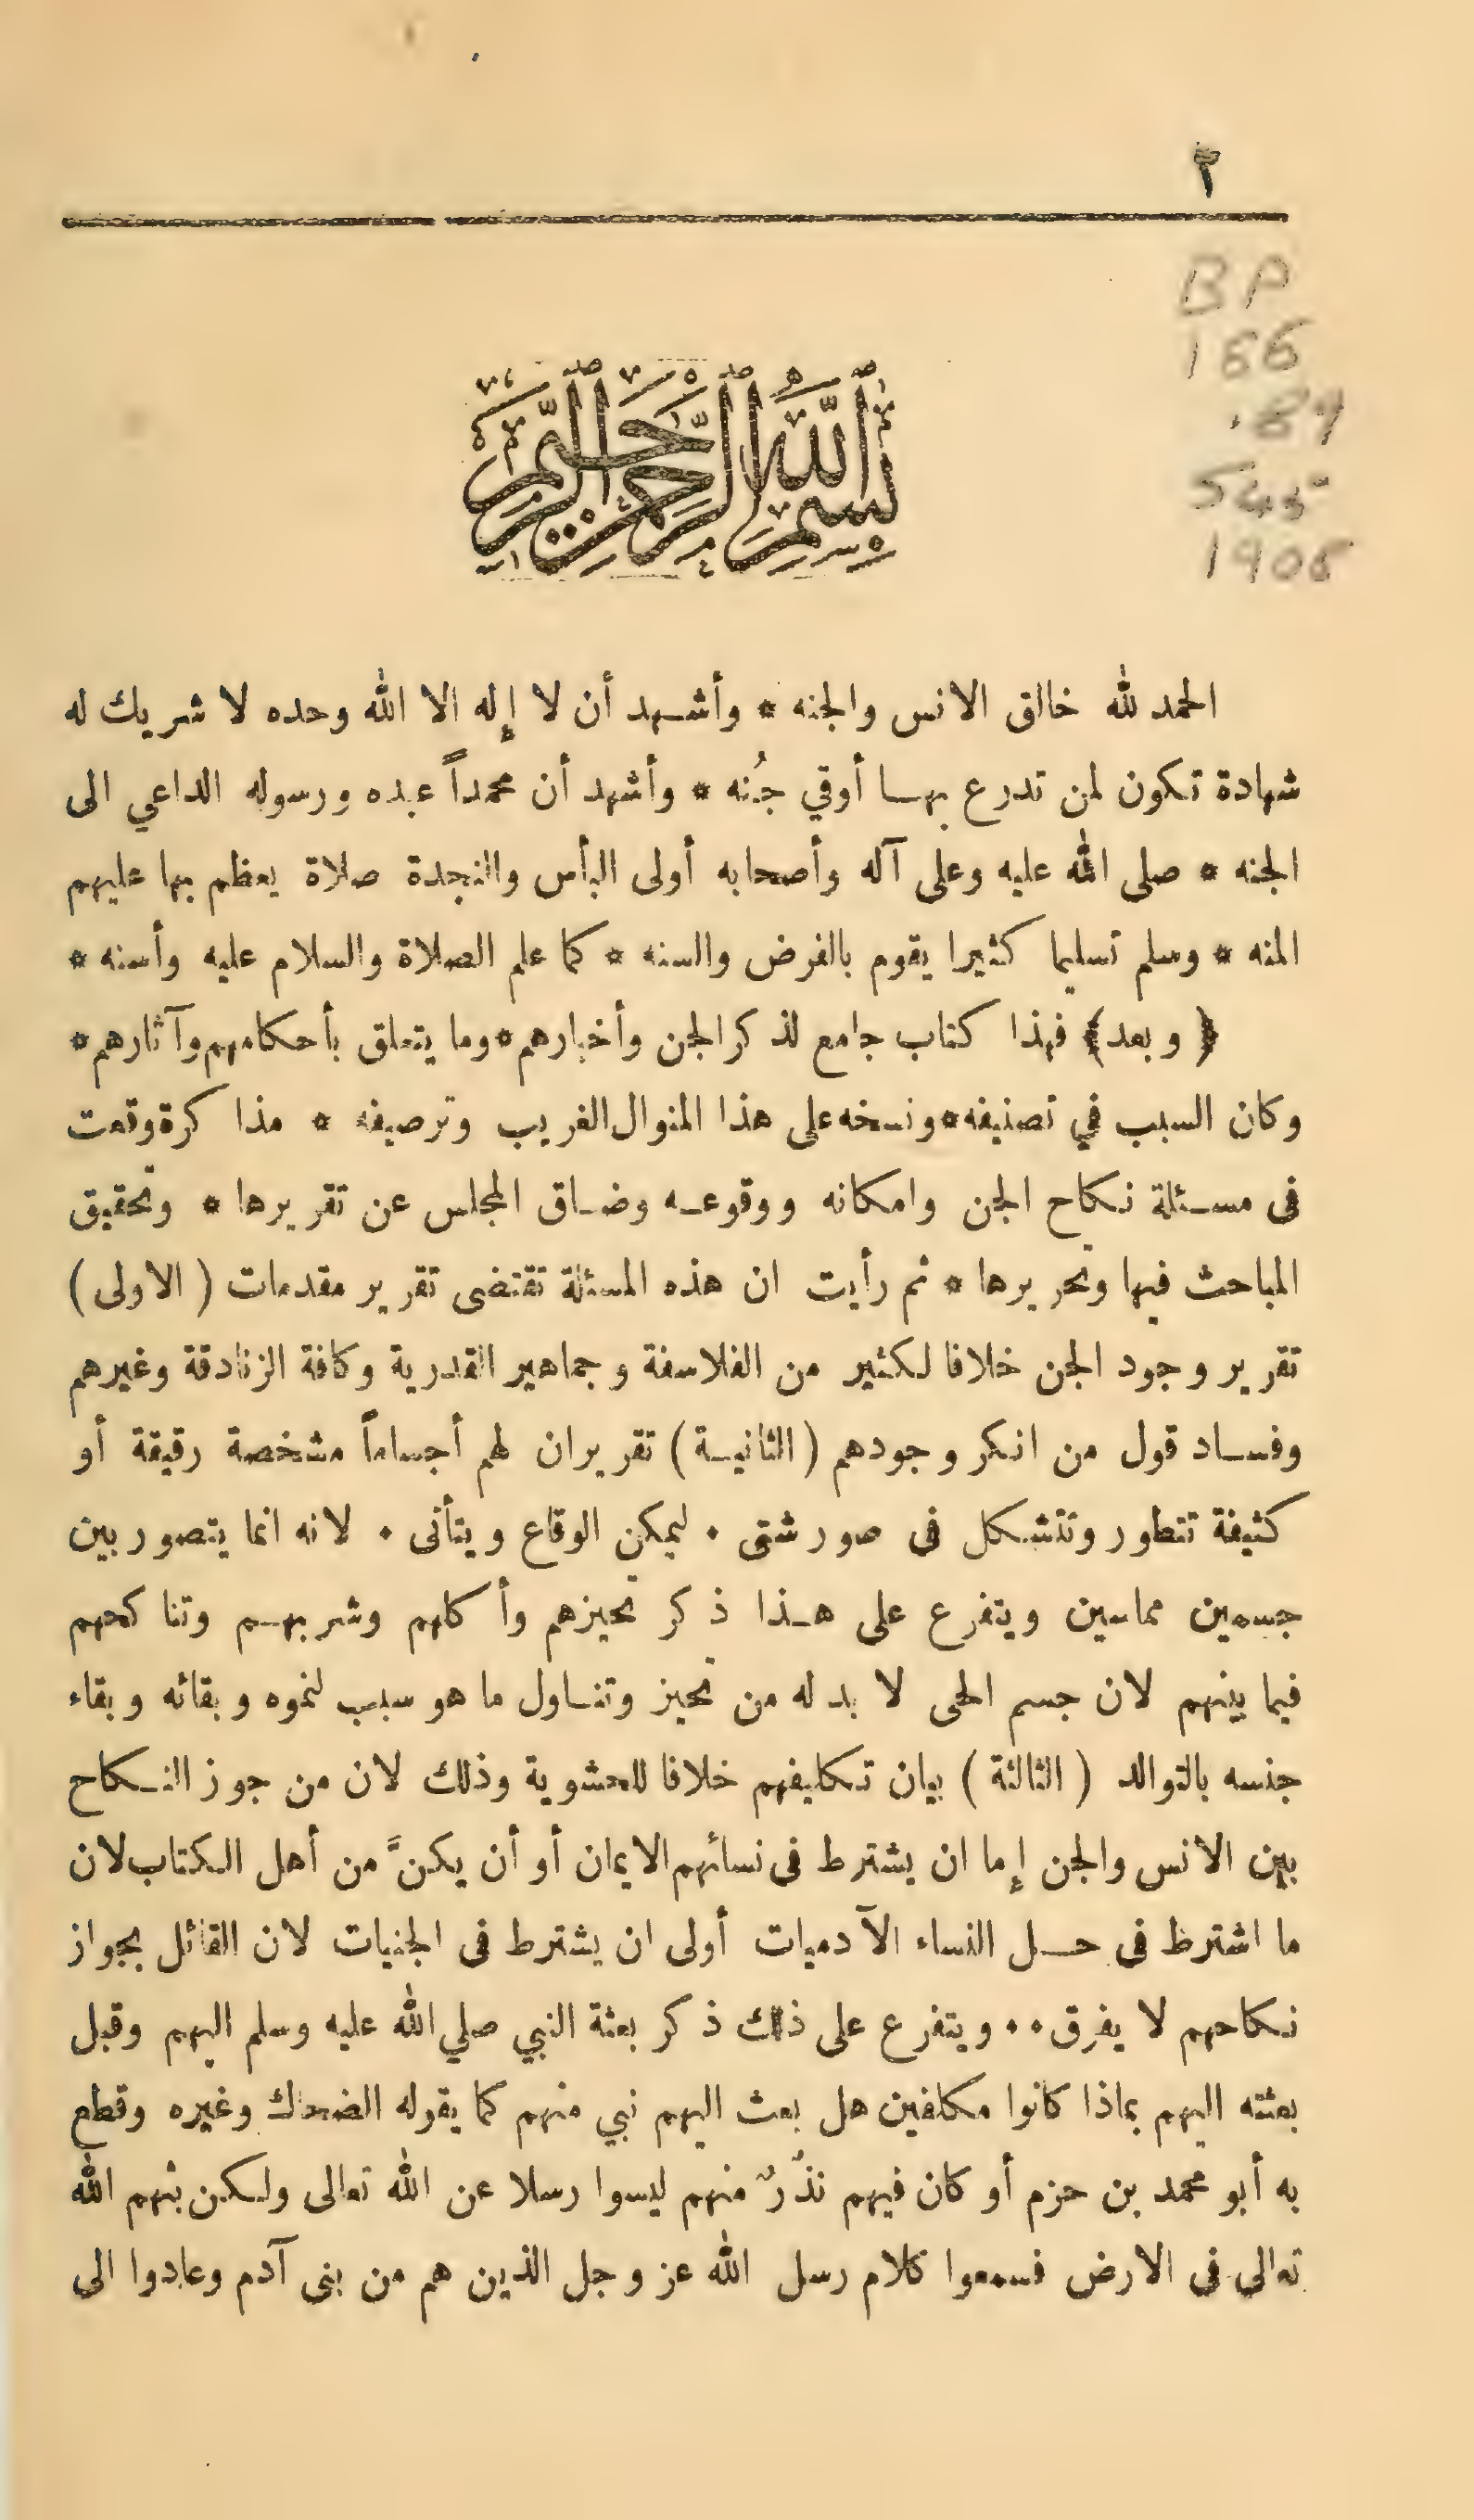 ٣
BP
166
.89
S45
1908
بسم الله الرحمن الرحيم
الحمد لله خالق الانس والجنه * وأشهد أن لا إله الا الله وحده لا شريك له
شهادة تكون لمن تدرع بها أوقي جُنه * وأشهد أن محمداً عبده ورسوله الداعي الى
الجنه * صلى الله عليه وعلى آله وأصحابه أولى البأس والنجدة صلاة يعظم بها عليهم
المنه * وسلم تسليما كثيرا يقوم بالفرض والسنه * كما علم الصلاة والسلام عليه وأسنه *
﴿ وبعد﴾ فهذا كتاب جامع لذكر الجن وأخبارهم * وما يتعلق بأحكامهم وآثارهم *
وكان السبب في تصنيفه * ونسخه على هذا المنوال الغريب وترصيفه * مذاكرة وقعت
فى مسئلة نكاح الجن وامكانه ووقوعه وضاق المجلس عن تقريرها * وتحقيق
المباحث فيها وتحريرها * ثم رأيت ان هذه المسئلة تقتضى تقرير مقدمات ( الاولى )
تقرير وجود الجن خلافا لكثير من الفلاسفة وجماهير القدرية وكافة الزنادقة وغيرهم
وفساد قول من انكر وجودهم ( الثانية ) تقرير ان لهم أجساماً مشخصة رقيقة أو
كثيفة تتطور وتتشكل فى صور شتى . ليمكن الوقاع ويتأتى . لانه انما يتصور بين
جسمين مماسين ويتفرع على هذا ذكر تحيزهم وأكلهم وشربهم وتناكحهم
فيما بينهم لان جسم الحى لا بد له من تحيز وتناول ما هو سبب لنموه وبقائه وبقاء
جنسه بالتوالد ( الثالثة ) بيان تكليفهم خلافا للحشوية وذلك لان من جوز النكاح
بين الانس والجن إما ان يشترط فى نسائهم الايمان أو أن يكنّ من أهل الكتاب لان
ما اشترط فى حل النساء الآدميات أولى ان يشترط فى الجنيات لان القائل بجواز
نكاحهم لا يفرق . . ويتفرع على ذلك ذكر بعثة النبي صلي الله عليه وسلم اليهم وقبل
بعثته اليهم بماذا كانوا مكلفين هل بعث اليهم نبي منهم كما يقوله الضحاك وغيره وقطع
به أبو محمد بن حزم أو كان فيهم نذُرٌ منهم ليسوا رسلا عن الله تعالى ولكن بثهم الله
تعالى فى الارض فسمعوا كلام رسل الله عز وجل الذين هم من بنى آدم وعادوا الى